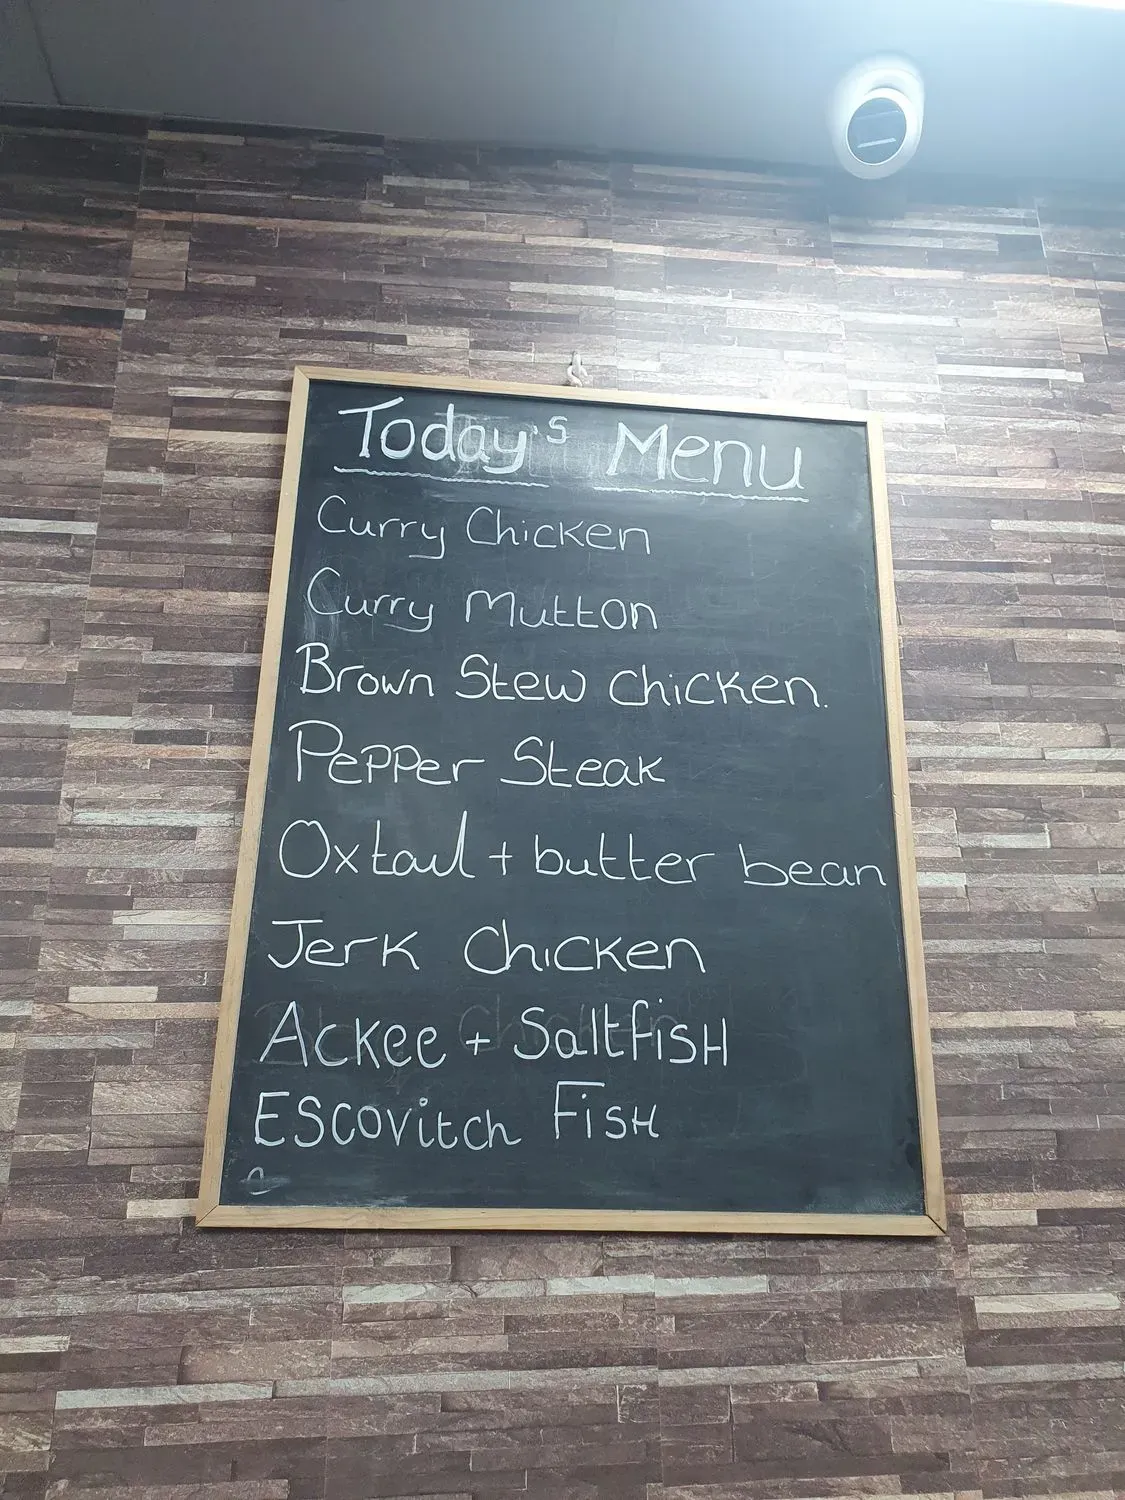 Today's Menu
Curry Chicken
Curry Mutton
Brown Stew Chicken.
Pepper Steak
Oxtail + butter bean
Jerk Chicken
Ackee + Saltfish
Escovitch Fish